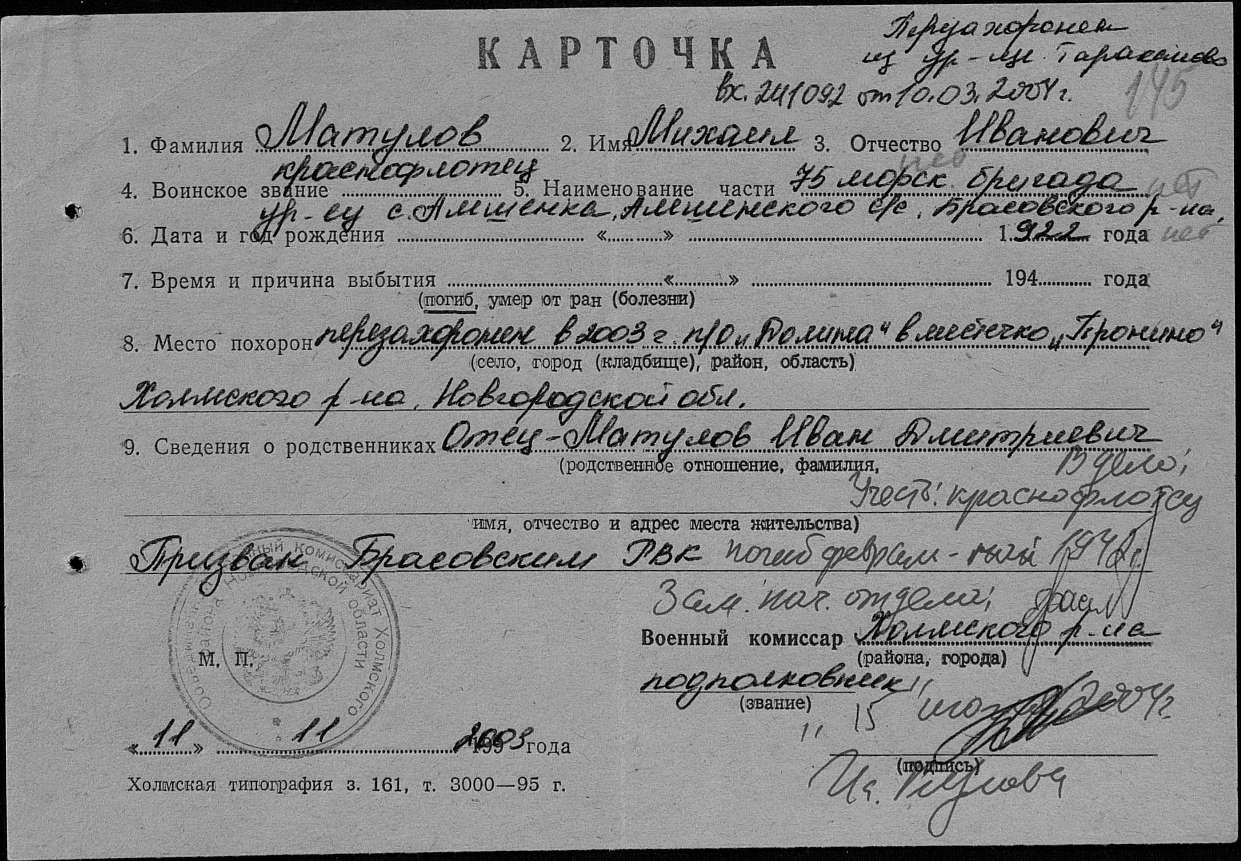 Перезахоронен
КАРТОЧКА
из ур-ща Тараканово
вх. 241092 от 10.03.2004г.
145
1. Фамилия Матулов 2. Имя Михаил 3. Отчество Иванович
краснофлотец
4. Воинское звание 5. Наименование части 75 морск. бригада нет
ур-ец с. Алешенка, Алешенского с/с, Брасовского р-на,
6. Дата и год рождения « » 1922 года нет
7. Время и причина выбытия « » 194 года
(погиб, умер от ран (болезни)
8. Место похорон перезахоронен в 2003 г. п/о "Долина" в местечко "Пронино"
(село, город (кладбище), район, область)
Холмского р-на, Новгородской обл.
9. Сведения о родственниках Отец-Матулов Иван Дмитриевич
(родственное отношение, фамилия,
В дело;
Учесть: краснофлотец
имя, отчество и адрес места жительства)
Призван Брасовским РВК погиб феврал- 1942г.
Зам. нач. отдела;
Военный комиссар Холмского р-на
(района, города)
М. П.
подполковник
(звание)
" 15 2004г.
«11» 11 2003 года
(подпись)
Холмская типография з. 161, т. 3000—95 г.